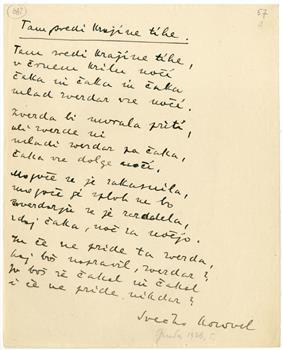 57
Tam sredi krajine tihe.
Tam sredi krajine tihe,
v črnem krilu noči
čaka in čaka in čaka
mlad zvezdar vse noči.
Zvezda bi morala priti,
ali zvezde ni
mladi zvezdar pa čaka,
čaka vse dolge noči.
Mogoče se je zakasnila,
mogoče je sploh ne bo
zvezdarju se je razodela,
zdaj čaka, noč za nočjo.
In če ne pride ta zvezda,
kaj boš napravil, zvezdar?
Ja boš še čakal in čakal
i če ne pride nikdar?
Srečko Kosovel